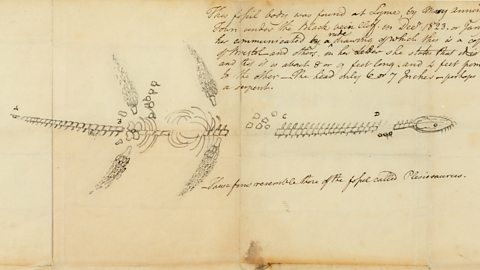 This fossil body was found at Lyme, by Mary Annin
Town under the Black Cliff on Decr 1823. or Jan
has communicated by a rude drawing of which this is a cop
of Bristol and others, in her letter she states that
and that it is about 8 or 9 feet long, and 4 feet
to the other – The head only 6 or 7 Inches – perhaps
a serpent.
A
B
C
D
– These fins resemble those of the fossil called Plesiosaurus.